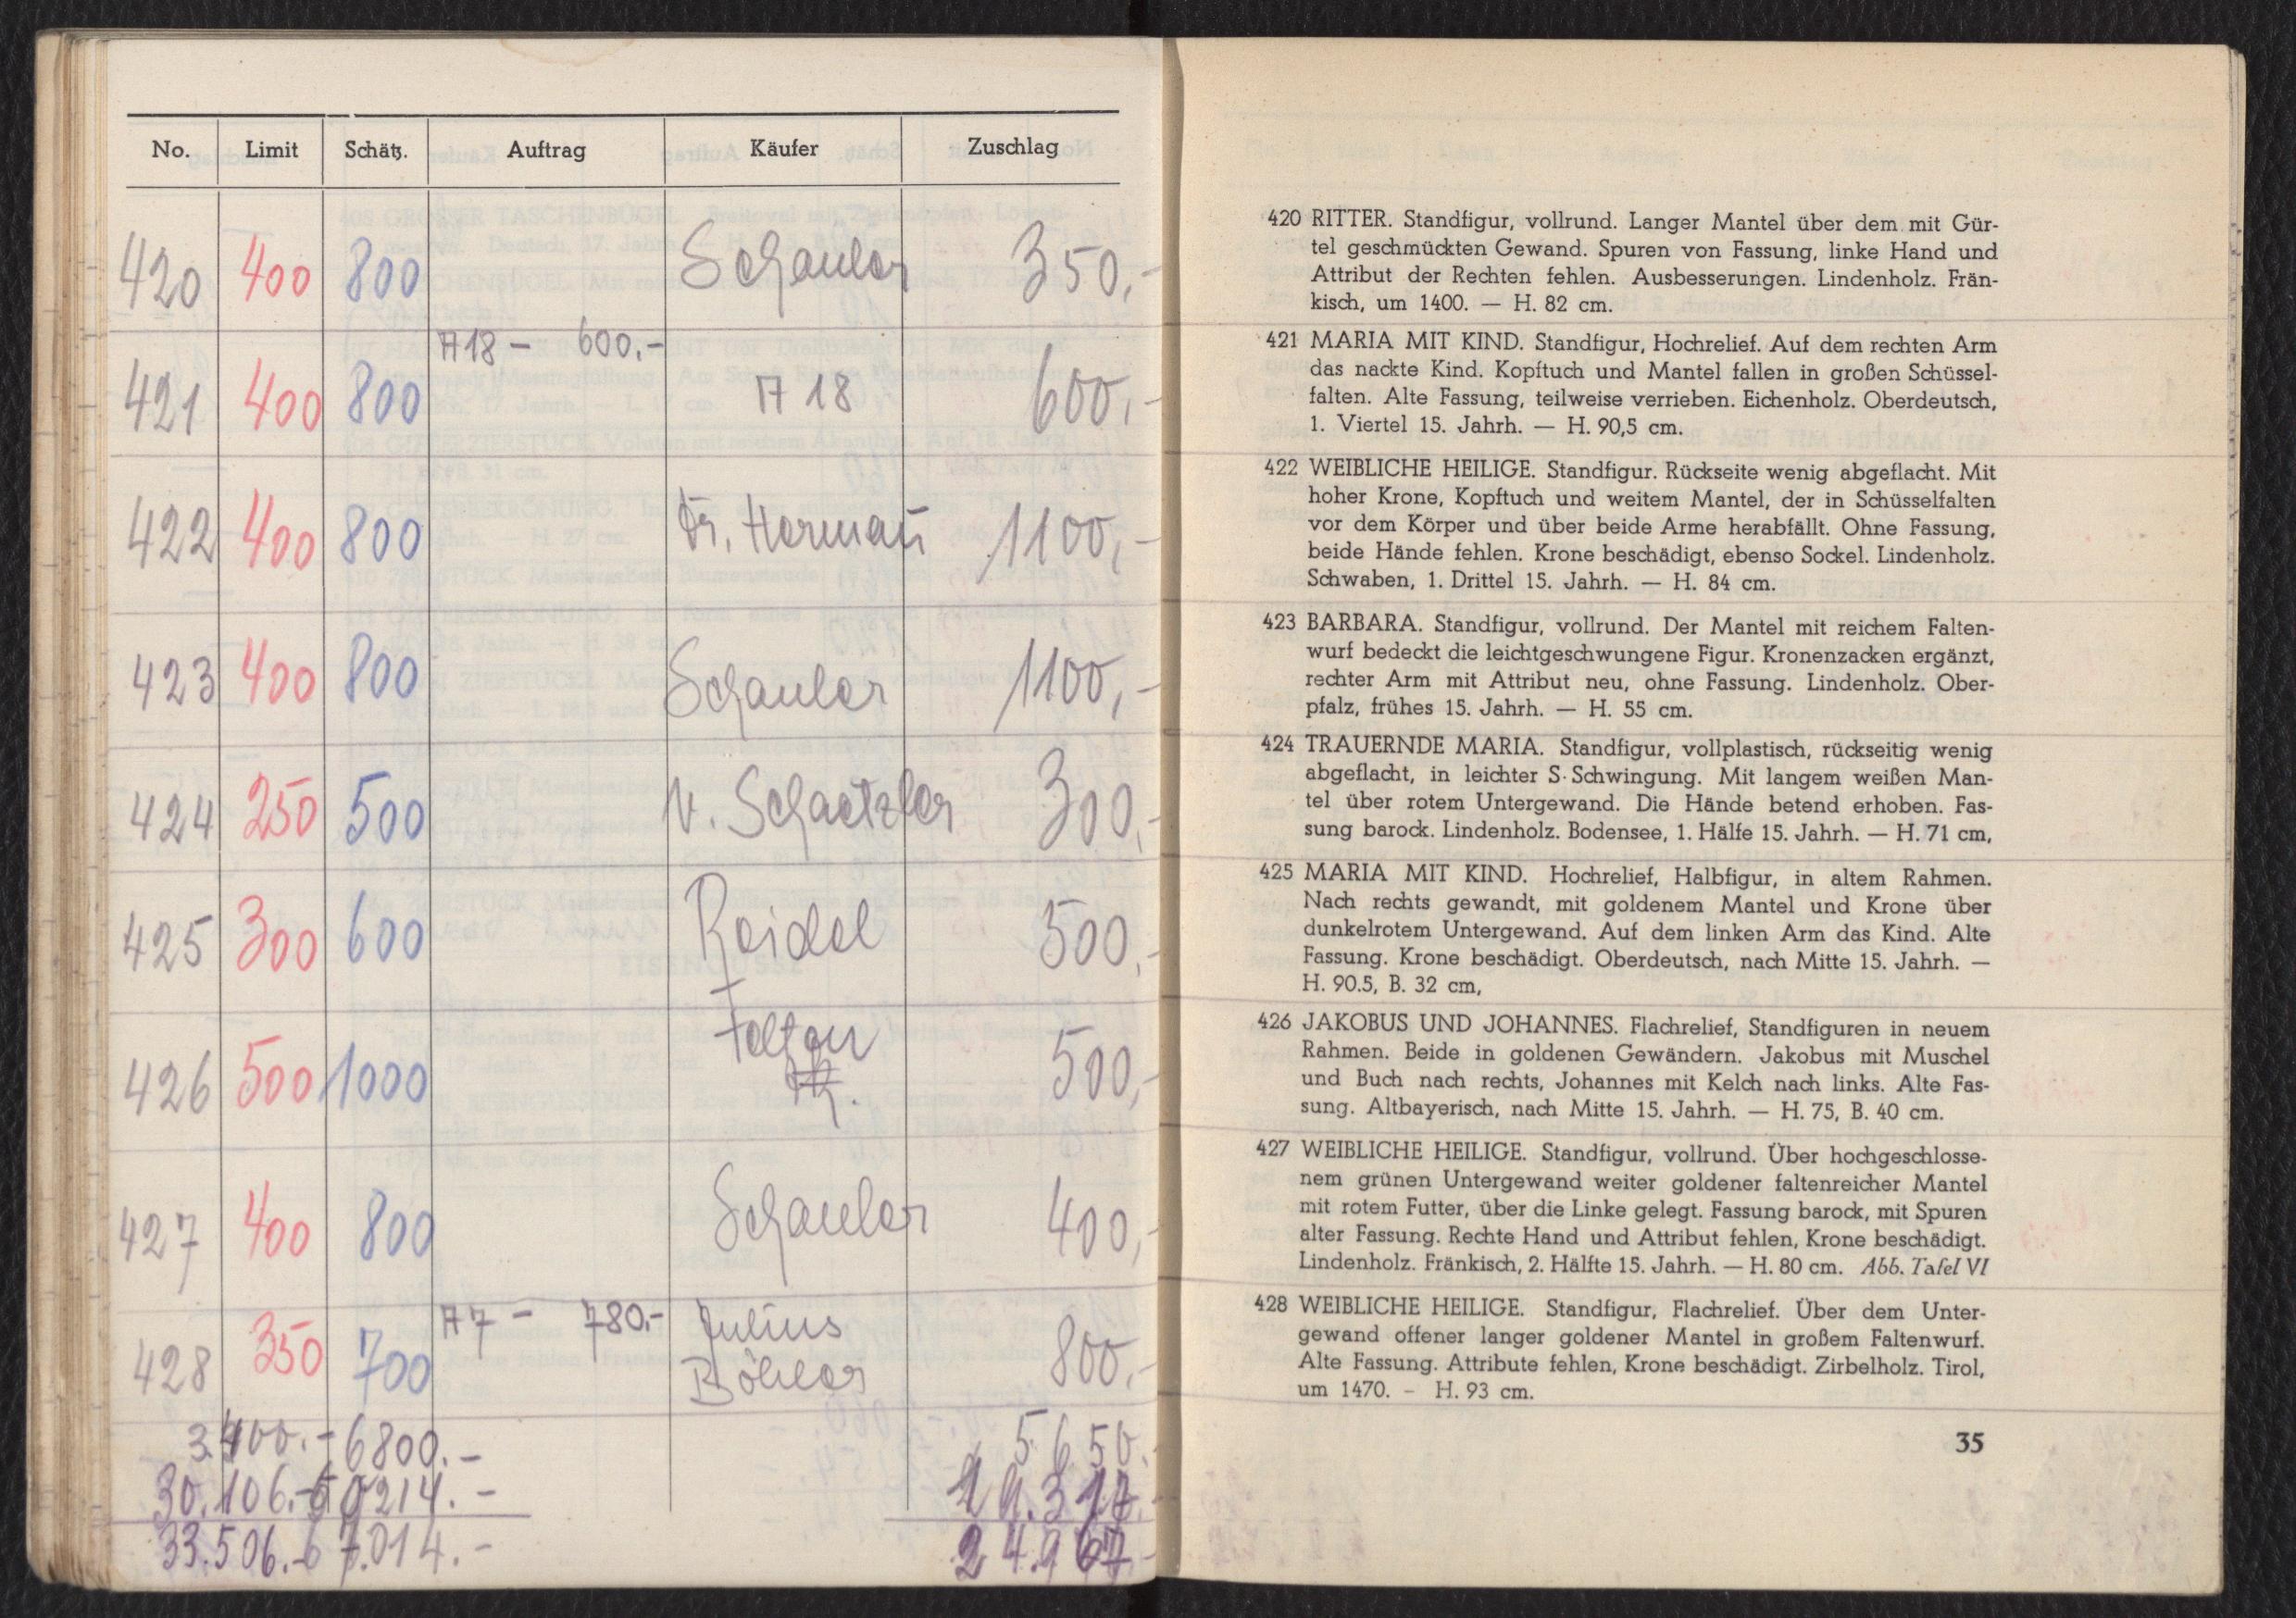 No. Limit Schätz. Auftrag Käufer Zuschlag
420 400 800 Schauler 350,-
A18 - 600.-
421 400 800 A 18 600,-
422 400 800 Dr. Herman̄ 1100,-
423 400 800 Schauler 1100,-
424 250 500 v. Schaetzler 300,-
425 300 600 Reidel 500,-
426 500 1000 500,-
427 400 800 Schauler 400,-
A7 - 780.- Julius
428 350 700 Böhler 800,-
3.400.- 6800.- 5650.
30.106.- 60214.- 19.317.-
33.506.- 67.014.- 24.967.-
420 RITTER. Standfigur, vollrund. Langer Mantel über dem mit Gür-
tel geschmückten Gewand. Spuren von Fassung, linke Hand und
Attribut der Rechten fehlen. Ausbesserungen. Lindenholz. Frän-
kisch, um 1400. — H. 82 cm.
421 MARIA MIT KIND. Standfigur, Hochrelief. Auf dem rechten Arm
das nackte Kind. Kopftuch und Mantel fallen in großen Schüssel-
falten. Alte Fassung, teilweise verrieben. Eichenholz. Oberdeutsch,
1. Viertel 15. Jahrh. — H. 90,5 cm.
422 WEIBLICHE HEILIGE. Standfigur. Rückseite wenig abgeflacht. Mit
hoher Krone, Kopftuch und weitem Mantel, der in Schüsselfalten
vor dem Körper und über beide Arme herabfällt. Ohne Fassung,
beide Hände fehlen. Krone beschädigt, ebenso Sockel. Lindenholz.
Schwaben, 1. Drittel 15. Jahrh. — H. 84 cm.
423 BARBARA. Standfigur, vollrund. Der Mantel mit reichem Falten-
wurf bedeckt die leichtgeschwungene Figur. Kronenzacken ergänzt,
rechter Arm mit Attribut neu, ohne Fassung. Lindenholz. Ober-
pfalz, frühes 15. Jahrh. — H. 55 cm.
424 TRAUERNDE MARIA. Standfigur, vollplastisch, rückseitig wenig
abgeflacht, in leichter S-Schwingung. Mit langem weißen Man-
tel über rotem Untergewand. Die Hände betend erhoben. Fas-
sung barock. Lindenholz. Bodensee, 1. Hälfe 15. Jahrh. — H. 71 cm,
425 MARIA MIT KIND. Hochrelief, Halbfigur, in altem Rahmen.
Nach rechts gewandt, mit goldenem Mantel und Krone über
dunkelrotem Untergewand. Auf dem linken Arm das Kind. Alte
Fassung. Krone beschädigt. Oberdeutsch, nach Mitte 15. Jahrh. —
H. 90.5, B. 32 cm,
426 JAKOBUS UND JOHANNES. Flachrelief, Standfiguren in neuem
Rahmen. Beide in goldenen Gewändern. Jakobus mit Muschel
und Buch nach rechts, Johannes mit Kelch nach links. Alte Fas-
sung. Altbayerisch, nach Mitte 15. Jahrh. — H. 75, B. 40 cm.
427 WEIBLICHE HEILIGE. Standfigur, vollrund. Über hochgeschlosse-
nem grünen Untergewand weiter goldener faltenreicher Mantel
mit rotem Futter, über die Linke gelegt. Fassung barock, mit Spuren
alter Fassung. Rechte Hand und Attribut fehlen, Krone beschädigt.
Lindenholz. Fränkisch, 2. Hälfte 15. Jahrh. — H. 80 cm. Abb. Tafel VI
428 WEIBLICHE HEILIGE. Standfigur, Flachrelief. Über dem Unter-
gewand offener langer goldener Mantel in großem Faltenwurf.
Alte Fassung. Attribute fehlen, Krone beschädigt. Zirbelholz. Tirol,
um 1470. – H. 93 cm.
35